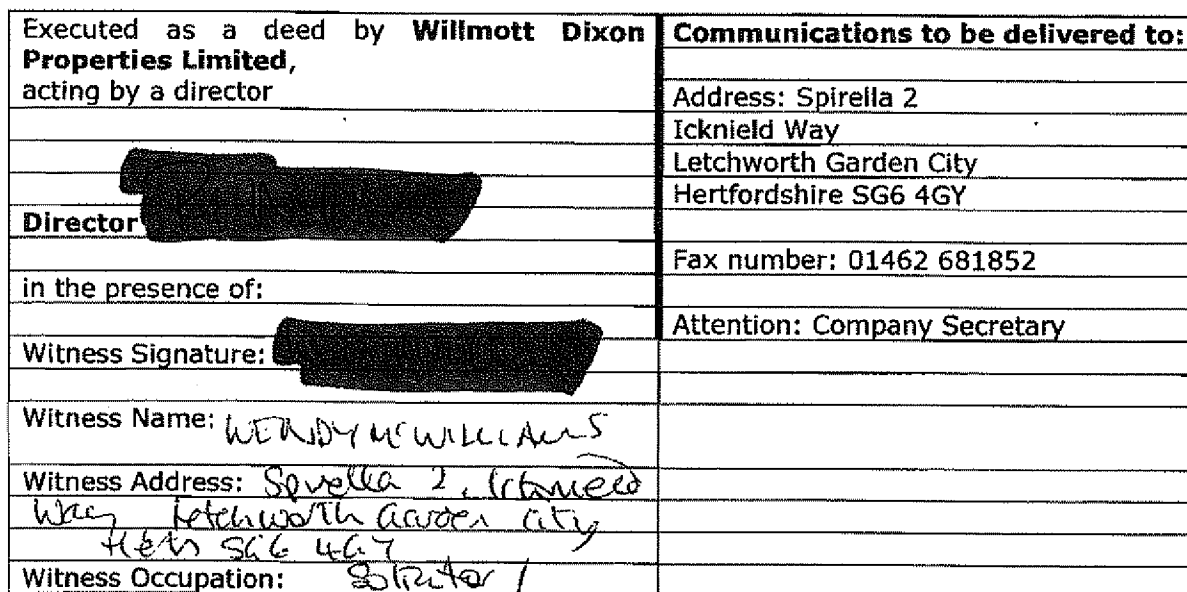 Executed as a deed by Willmott Dixon
Properties Limited,
acting by a director
Director
in the presence of:
Witness Signature:
Witness Name: WENDY MCWILLIAMS
Witness Address: Spirella 2, Icknield
Way Letchworth Garden City
Herts SG6 4GY
Witness Occupation: Solicitor
Communications to be delivered to:
Address: Spirella 2
Icknield Way
Letchworth Garden City
Hertfordshire SG6 4GY
Fax number: 01462 681852
Attention: Company Secretary